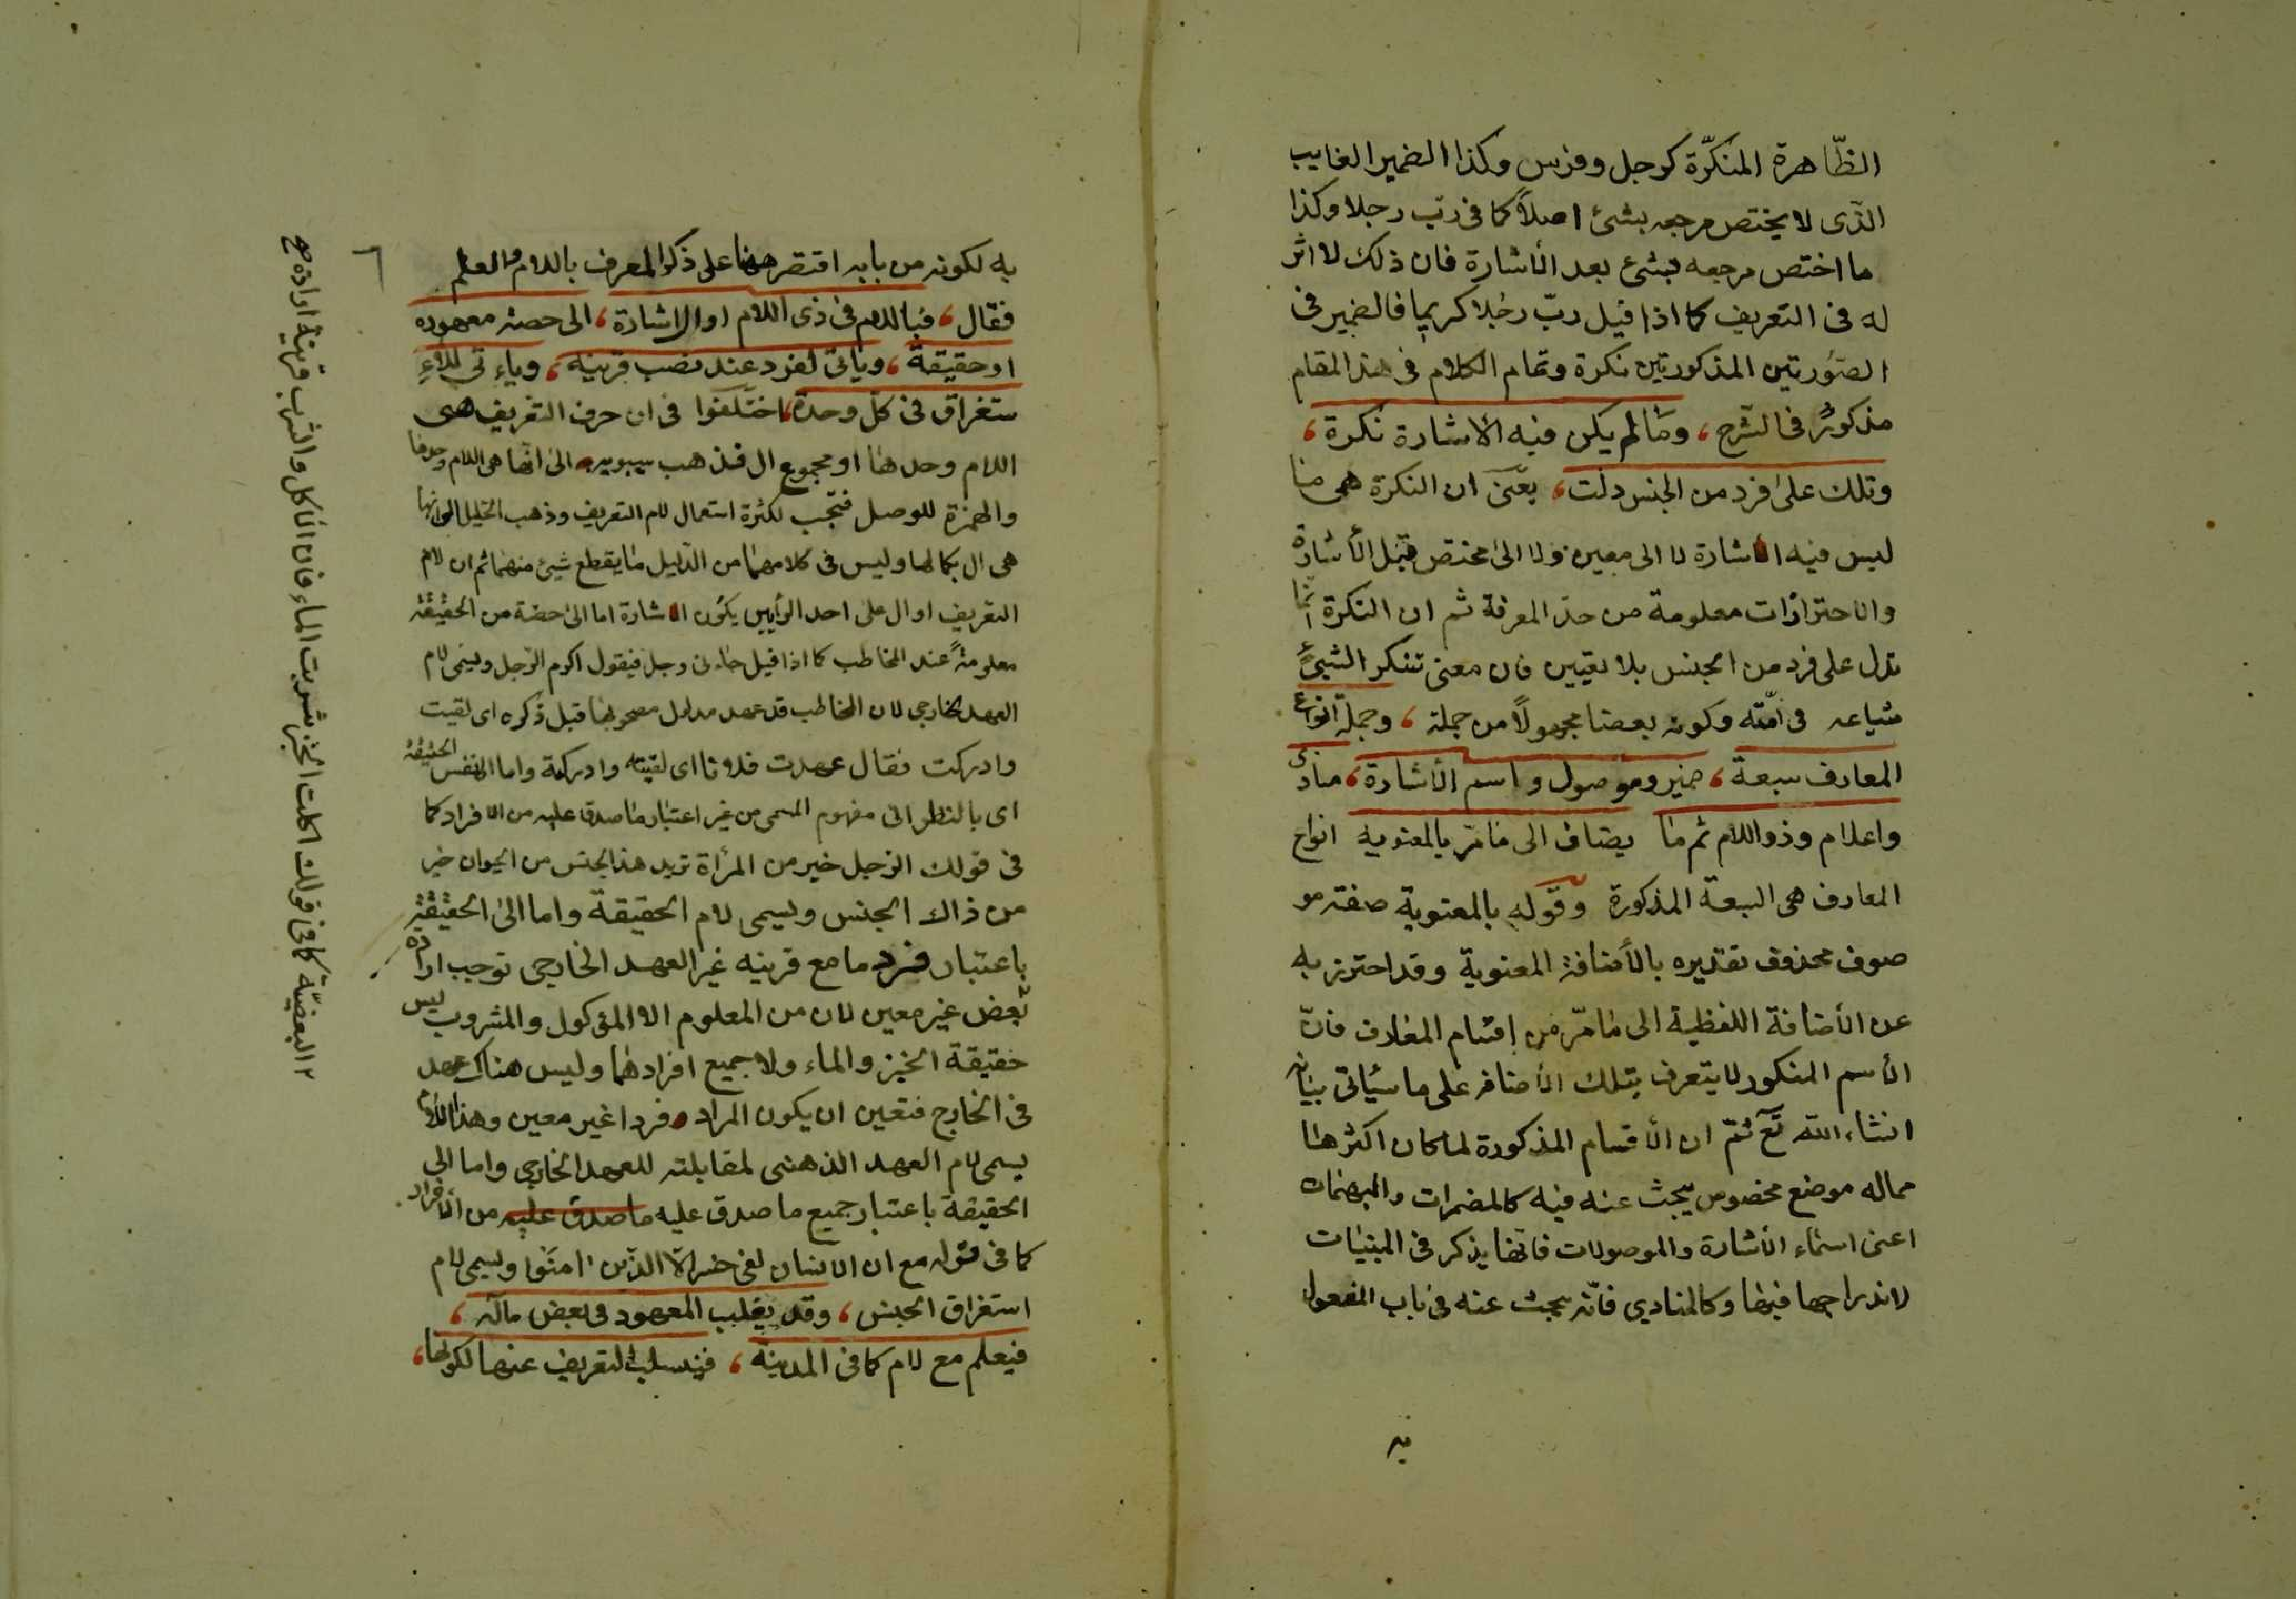 الظّاهرة المنكرّة كرجل وفرس وكذا الضمير الغايب
الذّى لا يختص مرجعه بشئ اصلاً كما فى ربّ رجلا وكذا
ما اختص مرجعه بشئ بعد الأشارة فان ذلك لا اثر
له فى التعريف كما اذا قيل ربّ رجلا كريما فالضمير فى
الصّورتين المذكورتين نكرة وتمام الكلام فى هذ المقام
مذكورٌ فى الشّرح، وما لم يكن فيه الاشارة نكرة،
وتلك على فرد من الجنس دلت، يعنى ان النكرة هى ما
ليس فيه الأشارة لا الى معين ولا الى مختص قبل الأشارة
والاحترازات معلومة من حدّ المعرفة ثم ان النكرة انّما
تدل على فرد من الجنس بلا تعيين فان معنى تنكر الشئ
شياعه فى امّته وكونه بعضا مجهولاً من جملة، وجملة انواع
المعارف سبعة، ضمير وموصول واسم الأشارة، منادى
واعلام وذو اللام ثم ما يضاف الى ما مرّ بالمعنويه انواع
المعارف هى السبعة المذكورة وقوله بالمعنوية صفة مو
صوف محذوف تقديره بالأضافة المعنوية وقد احترز به
عن الأضافة اللفظية الى ما مرّ من اقسام المعارف فانّ
الأسم المنكور لا يتعرف بتلك الأضافه على ما سيأتى بيانه
انشاء الله تع ثمّ ان الأقسام المذكورة لما كان اكثرها
مما له موضع مخصوص يبحث عنه فيه كالمضمرات والمبهمات
اعنى اسماء الأشارة والموصولات فانّها يذكر فى المبنيات
لاندراجها فيها وكالمنادى فانّه يبحث عنه فى باب المفعول
به
٦
به لكونه من بابه اقتصر ههنا على ذكر المعرف باللام والعلم
فقال، فباللام فى ذى اللام او الاشارة، الى حصة معهوده
او حقيقة، وياتى لفرد عند نصب قرينه، وياءتى للاء
ستغراق فى كلّ وحدة، اختلفوا فى ان حرف التعريف هى
اللام وحدها او مجموع ال فذهب سيبويه الى انّها هى اللام وحدها
والهمزة للوصل فتجب لكثرة استعمال لام التعريف وذهب الخليل الى انها
هى ال بكمالها وليس فى كلامهما من الدّليل ما يقطع شيئ منهما ثم ان لام
التعريف او ال على احد الرأيين يكون الاشارة اما الى حصة من الحقيقة
معلومةً عند المخاطب كما اذا قيل جاءنى رجل فيقول اكرم الرّجل ويسمى لام
العهد الخارجى لان المخاطب قد عهد مدلول مصحوبها قبل ذكره اى لقيت
وادركت فقال عهدت فلانا اى لقيته وادركته واما الى نفس الحقيقة
اى بالنظر الى مفهوم المسمى من غير اعتبار ما صدق عليه من الافراد كما
فى قولك الرّجل خير من المرأة تريد هذ الجنس من الحيوان خير
من ذاك الجنس ويسمى لام الحقيقة واما الى الحقيقة
باعتبار فرد ما مع قرينه غير العهد الخارجى توجب ارادة
بعض غير معين لان من المعلوم الا المؤكول والمشروب ليس
حقيقة الخبز والماء ولا جميع افرادهما وليس هناك عهد
فى الخارج فتعين ان يكون المراد فردا غير معين وهذ اللام
يسمى لام العهد الذهنى لمقابلته للعهد الخارجى واما الى
الحقيقة باعتبار جميع ما صدق عليه ما صدق عليه من الأفراد
كما فى قوله مع ان الانسان لفى خسر الّا الذين امنوا ويسمى لام
استغراق الجنس، وقد يغلب المعهود فى بعض ماله،
فيعلم مع لام كما فى المدينة، فينسلب التعريف عنها لكونها،
٢ البعضيّة كما فى قولك اكلت الخبز وشربت الماء فان الأكل والشرب قرينة ارادة صح